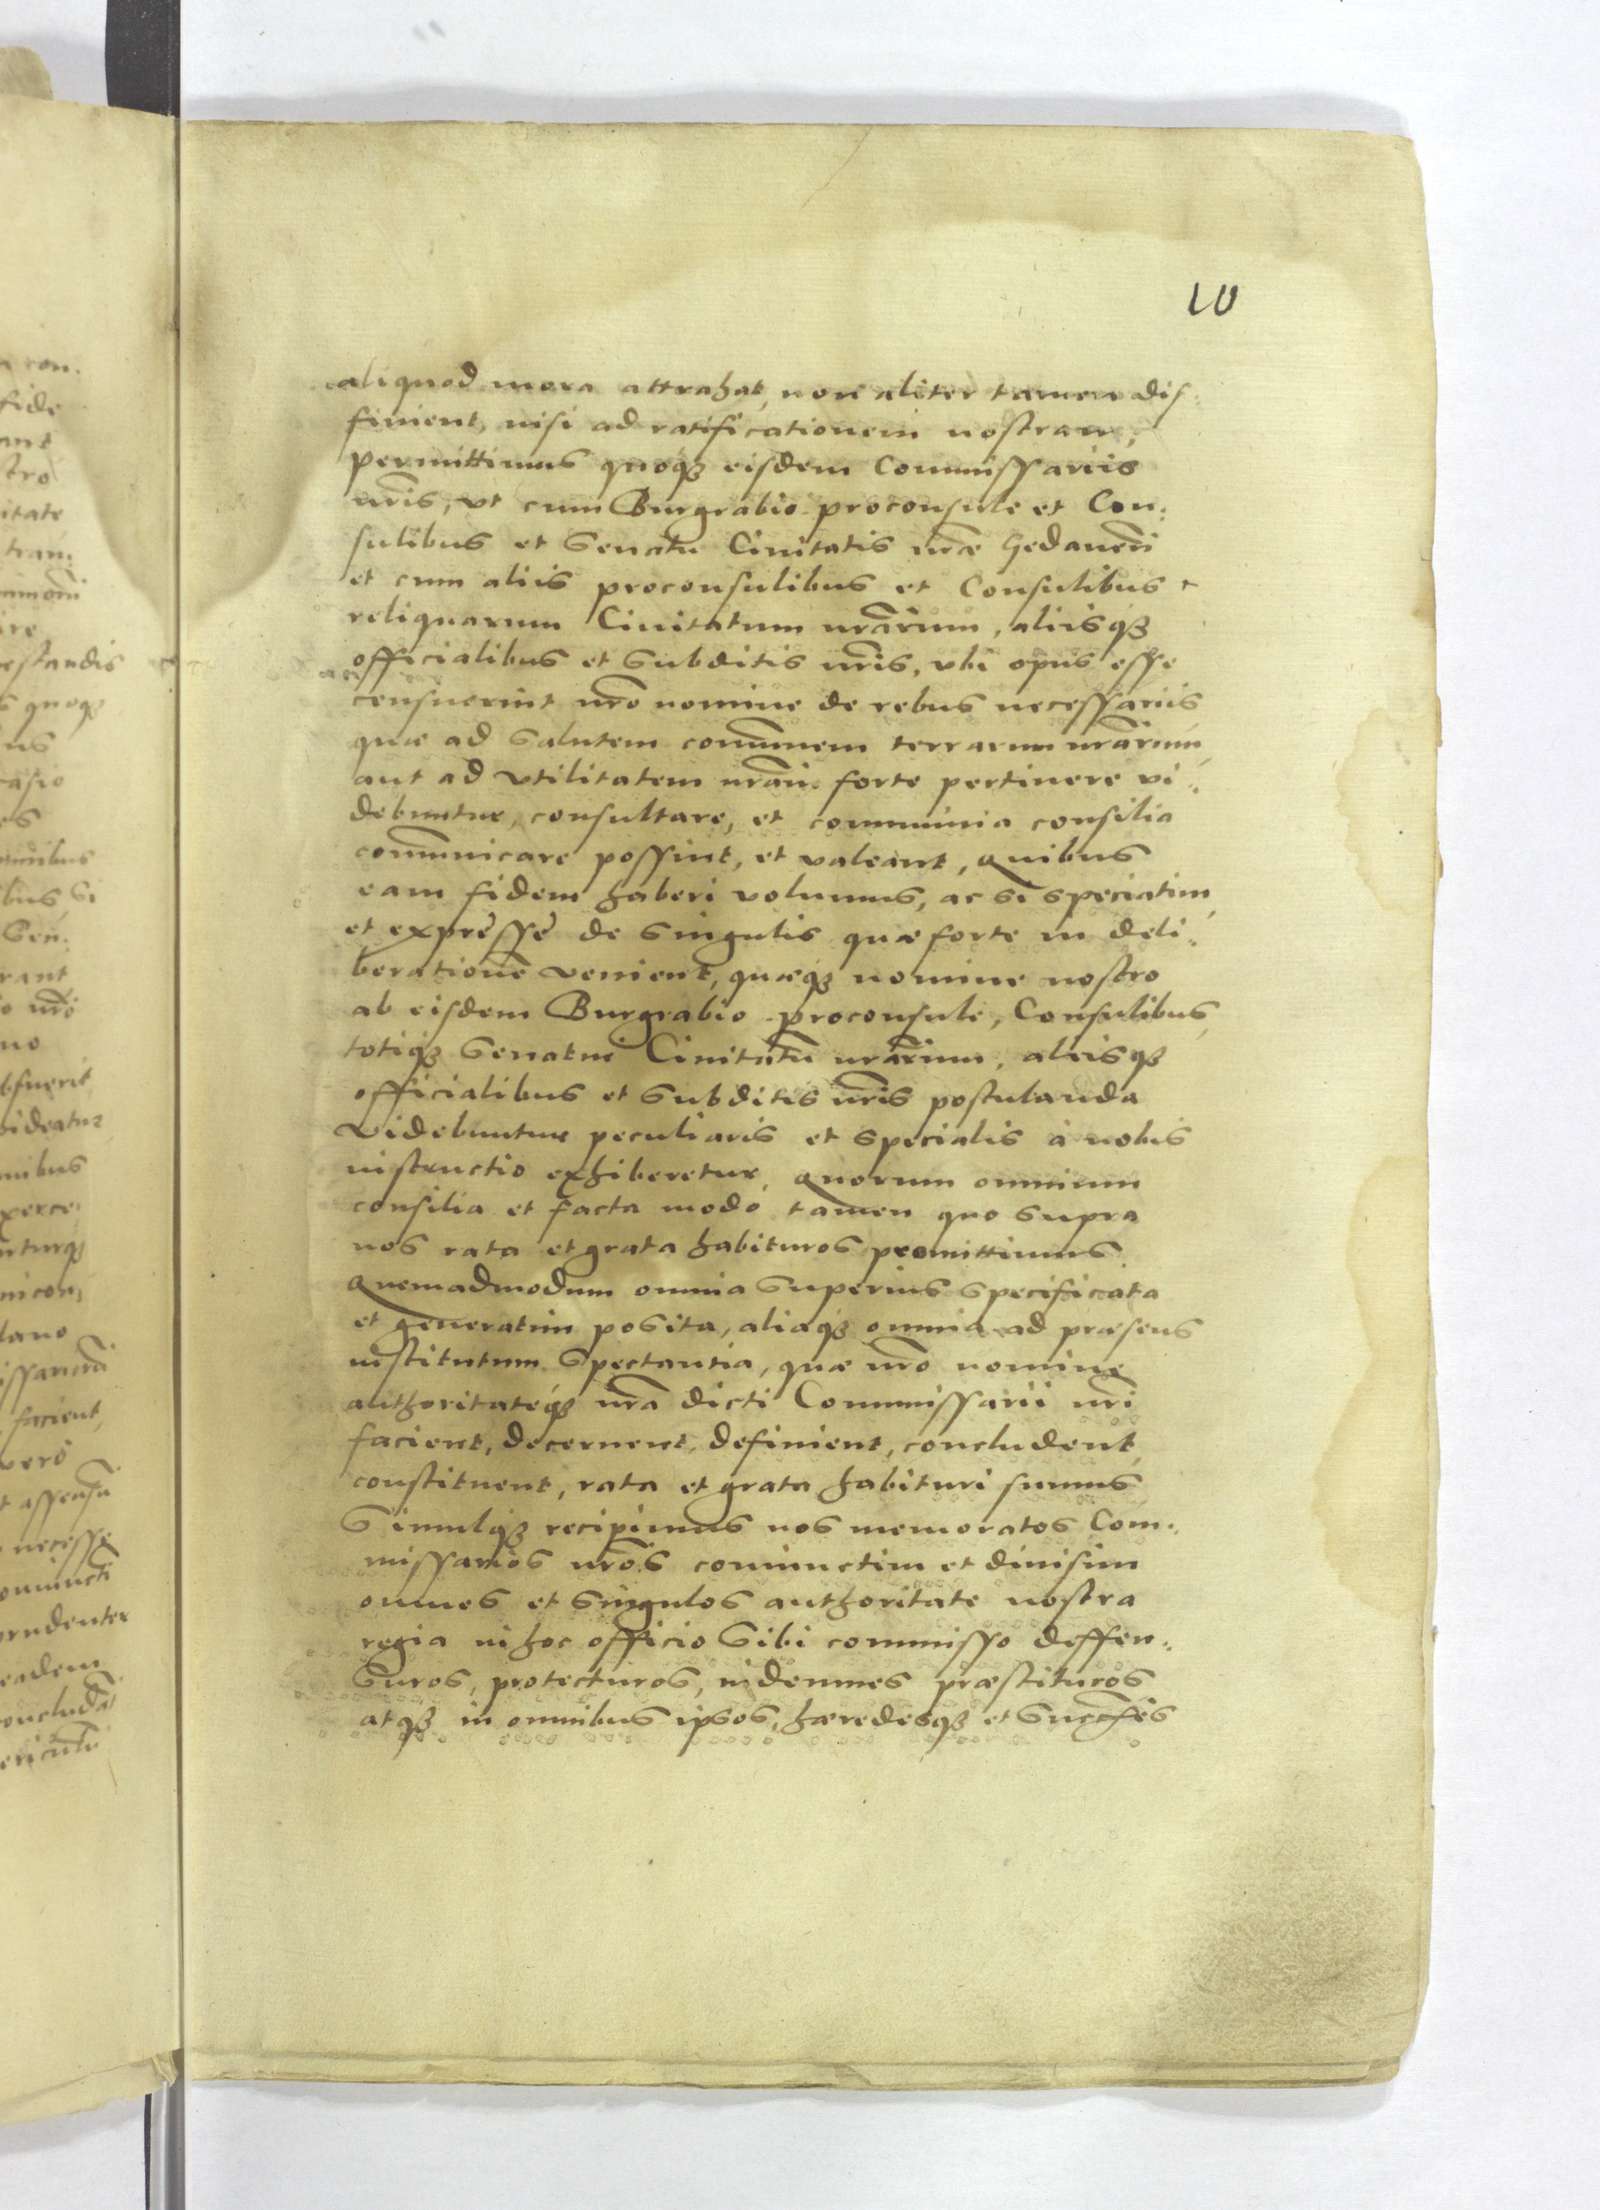 10
con.
fide
ant
stro
itate
tran:
ire
restandis
s quoqꝫ
us
casio
es
minibus
ibus Si
Sen:
rant
o nr̃o
no
bfuerit
videatur
mibus
xerce:
nturqꝫ
ni con:
lano
issarior̃
facient,
vero
t assensũ
necesse
oniuncti
prudenter
eadem
concludãt
ericulũ
aliquod mora attrahat, non aliter tamen dif:
finient, nisi ad ratificationem nostram,
permittimus quoqꝫ eisdem Commissariis
nr̃is, vt cum Burgrabio proconsule et Con:
sulibus et Senatu Ciuitatis nr̃ae Gedanen̄
et cum aliis proconsulibus et Consulibus
reliquarum Ciuitatum nr̃arum, aliisqꝫ
officialibus et Subditis nr̃is, vbi opus esse
censuerint nr̃o nomine de rebus necessariis
quae ad Salutem com̄unem terrarum nr̃arum
aut ad vtilitatem nr̃am forte pertinere vi:
debuntur, consultare, et communia consilia
com̄unicare possint, et valeant, Quibus
eam fidem haberi volumus, ac si speciatim
et expressè de Singulis quae forte in deli:
berationē venient, quaeqꝫ nomine nostro
ab eisdem Burgrabio proconsule, Consulibus
totiqꝫ Senatui Ciuitatũ nr̃arum, aliisqꝫ
officialibus et Subditis nr̃is postulanda
Videbuntur peculiaris et specialis à nobis
instructio exhiberetur, Quorum omnium
consilia et facta modo tamen quo supra
nos rata et grata habituros promittimus.
Quemadmodum omnia Superius Specificata
et generatim posita, aliaqꝫ omnia ad praesens
institutum Spectantia, quae nr̃o nomine
authoritateqꝫ nr̃a dicti Commissarii nr̃i
facient, decernent, definient, concludent
constituent, rata et grata habituri sumus
Simulqꝫ recipimus nos memoratos Com:
missarios nr̃os coniunctim et diuisim
omnes et Singulos authoritate nostra
regia in hoc officio Sibi commisso deffen:
Suros, protecturos, indemnes praestituros
atqꝫ in omnibus ipsos, haeredesqꝫ et Succ̃es